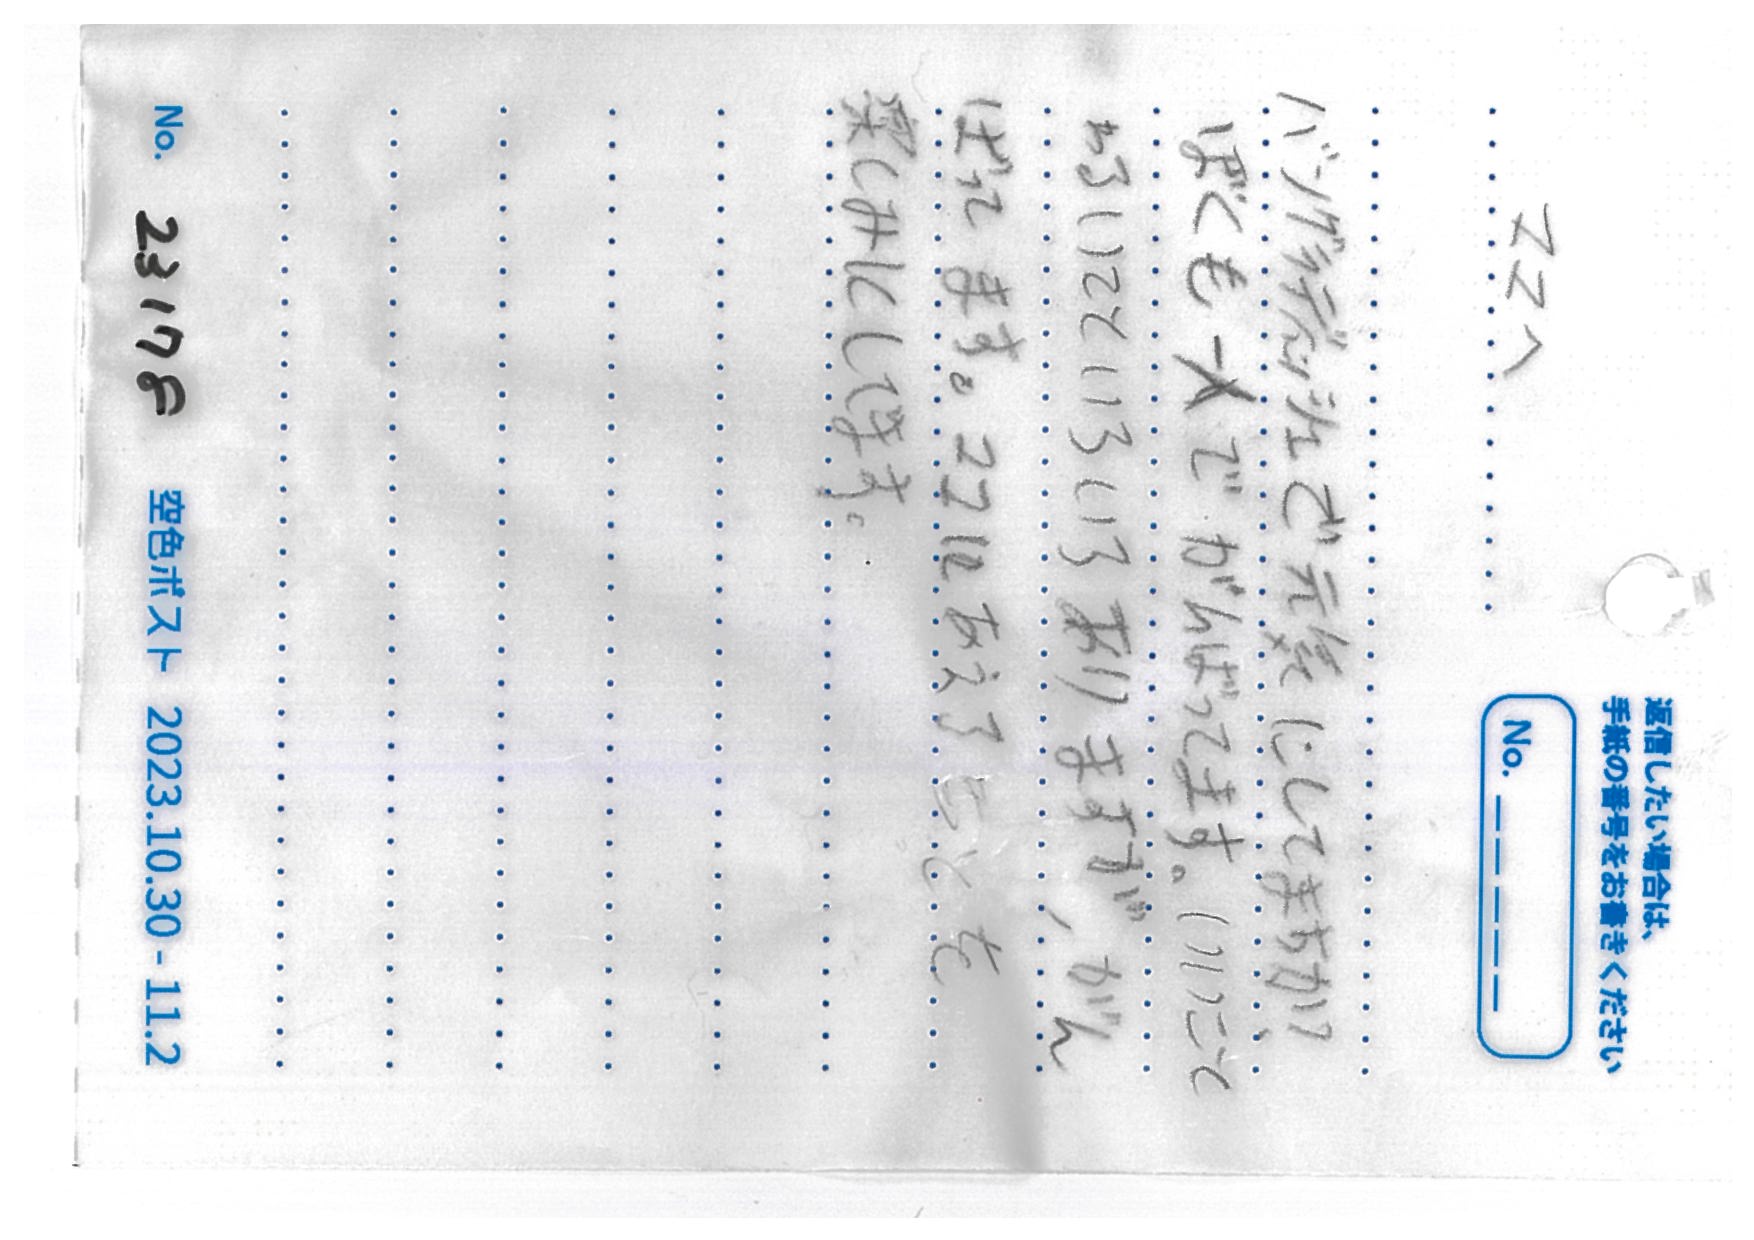 返信したい場合は、
手紙の番号をお書きください
No. _ _ _ _ _
ママへ
バングラディッシェで元気にしてまちか?
ぼくも一人でがんばってます。いいこと
わるいことといろいろありますが、がん
ばってます。ママにあえることを
楽しみにしてます。
No. 23178 空色ポスト 2023.10.30 - 11.2